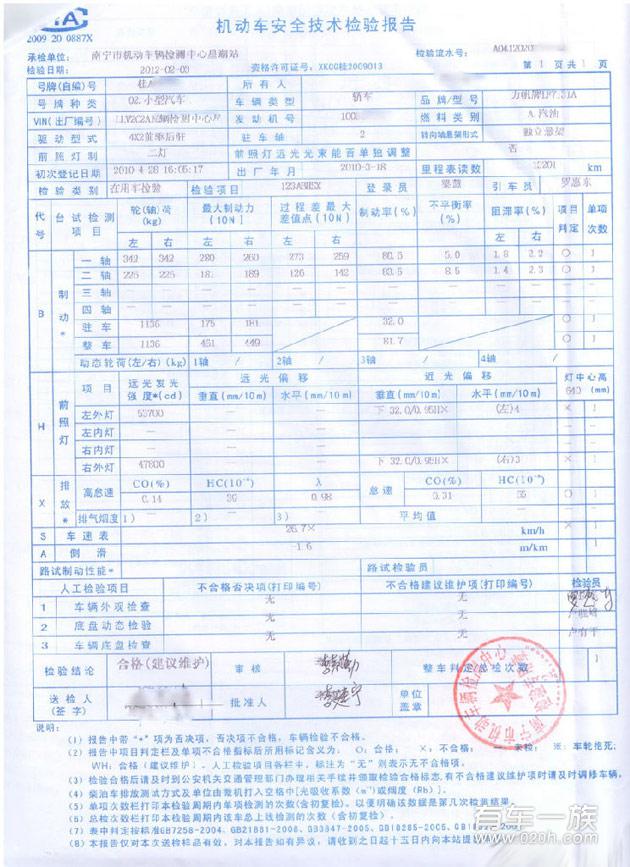 2009 20 0887X
机动车安全技术检验报告
承检单位: 南宁市机动车辆检测中心昌潮站 检验流水号: A0412020
检验日期: 2012-02-09 资格许可证号: XKCG桂2009013 第 1 页 共 1 页
号牌(自编)号 桂A 所有人
号牌种类 02.小型汽车 车辆类型 轿车 品牌/型号
VIN(出厂编号) 发动机号 100 燃料类别 A.汽油
驱动型式 4X2前驱后驻 驻车轴 2 转向轴悬架形式 独立悬架
前照灯制 二灯 前照灯远光光束能否单独调整 否
初次登记日期 2010-4-28 16:05:17 出厂年月 2010-3-18 里程表读数 km
检验类别 在用车检验 检验项目 登录员 引车员 罗惠东
代号 台试检测项目 轮(轴)荷(kg) 最大制动力(10N) 过程差最大差值点(10N) 制动率(%) 不平衡率(%) 阻滞率(%) 项目判定 单项次数
左 右 左 右 左 右 左 右
B 制动* 一轴 342 342 280 260 273 259 80.5 5.0 1.8 2.2 ○ 1
二轴 225 225 187 189 126 142 83.5 8.5 1.4 2.3 ○ 1
三轴 — — — — — — — — — —
四轴 — — — — — — — — — —
驻车 1136 175 181 32.0 ○ 1
整车 1136 451 449 81.7 ○ 1
动态轮荷(左/右)(kg) 1轴 / 2轴 / 3轴 / 4轴 /
H 前照灯 项目 远光发光强度*(cd) 远光偏移 近光偏移 灯中心高(mm)
垂直(mm/10m) 水平(mm/10m) 垂直(mm/10m) 水平(mm/10m) 640
左外灯 53700 — — 下 32.0/0.95H× (左)4 × 1
左内灯 — — — — —
右内灯 — — — — —
右外灯 47800 — — 下 32.0/0.95H× (右)3 × 1
X 排放* 高怠速 CO(%) HC(10⁻⁶) λ 怠速 CO(%) HC(10⁻⁶)
0.14 30 0.98 0.31 35 ○ 1
排气烟度 1) 2) 3) 平均值
S 车速表 26.7× km/h × 1
A 侧滑 -1.6 m/km 1
路试制动性能* 路试检验员
人工检验项目 不合格否决项(打印编号) 不合格建议维护项(打印编号) 检验员
1 车辆外观检查 无 无
2 底盘动态检验 无 无
3 车辆底盘检查 无 无
检验结论 合格(建议维护) 审核 整车判定总检次数 1
送检人(签字) 批准人 单位盖章
南宁市机动车辆检测中心
说明:
(1) 报告中带“*”项为否决项, 否决项不合格, 车辆检验不合格。
(2) 报告中项目判定栏及单项不合格指标后所用标记含义为: ○: 合格; ×: 不合格; —: 未检; ※: 车轮抱死;
WH: 合格(建议维护)。人工检验项目各栏中, 标注为“无”则表示无不合格项。
(3) 检验合格后请及时到公安机关交通管理部门办理相关手续并领取检验合格标志, 有不合格建议维护项时请及时调修车辆。
(4) 柴油车排放测试方式及单位由微机打入空格中[光吸收系数(m⁻¹)或烟度(Rb)]。
(5) 单项次数栏打印本检验周期内单项检测的次数(含初复检)。以便明确该数据是第几次检测结果。
(6) 总检次数栏打印本检验周期内该车总上线检测的次数(含初复检)。
(7) 表中判定按标准GB7258-2004、GB21861-2008、GB3847-2005、GB18285-2005、
(8) 本报告仅对本次送检样品有效, 对本报告如有异议, 请接到之日起十五日内向本站提
有车一族
www.020h.com